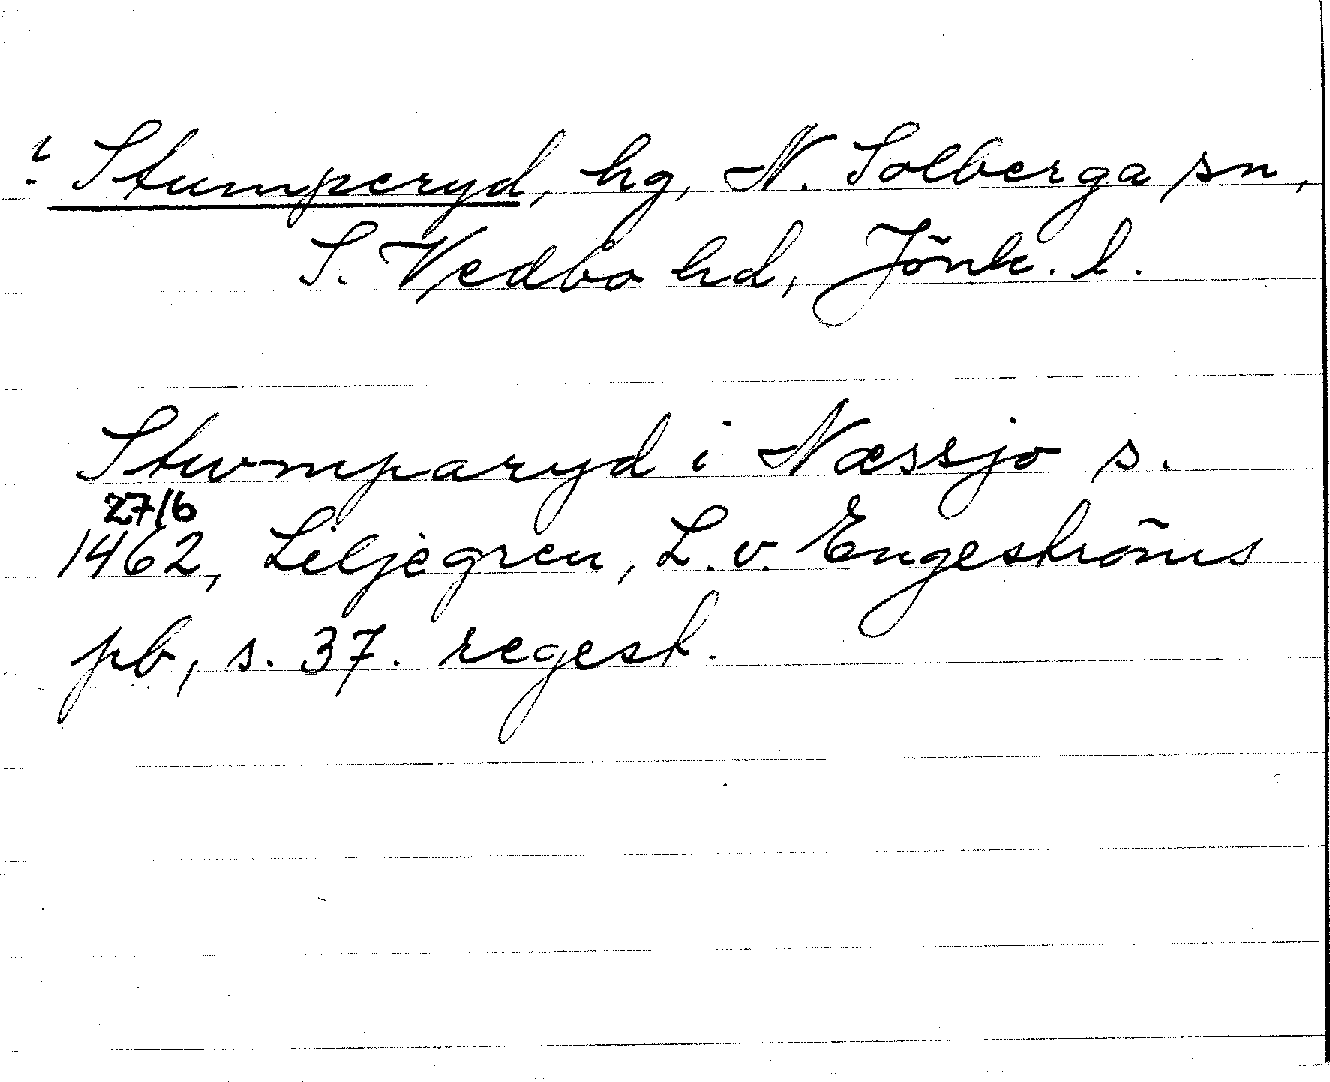 ? Stumperyd, hg, N. Solberga sn,
S. Vedbo hd, Jönk. l.
Stwmparyd i Næssjo s.
27/6
1462, Liljegren, L. v. Engeströms
pb, s. 37. regest.